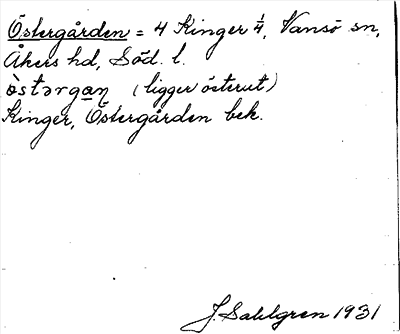 Östergården = 4 Kinger ¼, Vansö sn,
Åkers hd, Söd. l.
òstərgaɳ (ligger österut)
Kinger, Östergården bek.
J. Sahlgren 1931